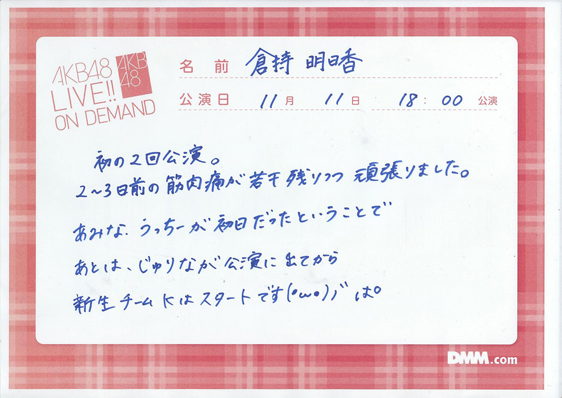 AKB48
LIVE!!
ON DEMAND
AKB
48
名前 倉持 明日香
公演日 11月 11日 18:00 公演
初の2回公演。
2〜3日前の筋肉痛が若干残りつつ頑張りました。
あみな、うっちーが初日だったということで
あとは、じゅりなが公演に出てから
新生チームKはスタートです(•ω•)ﾉﾞはo
DMM.com